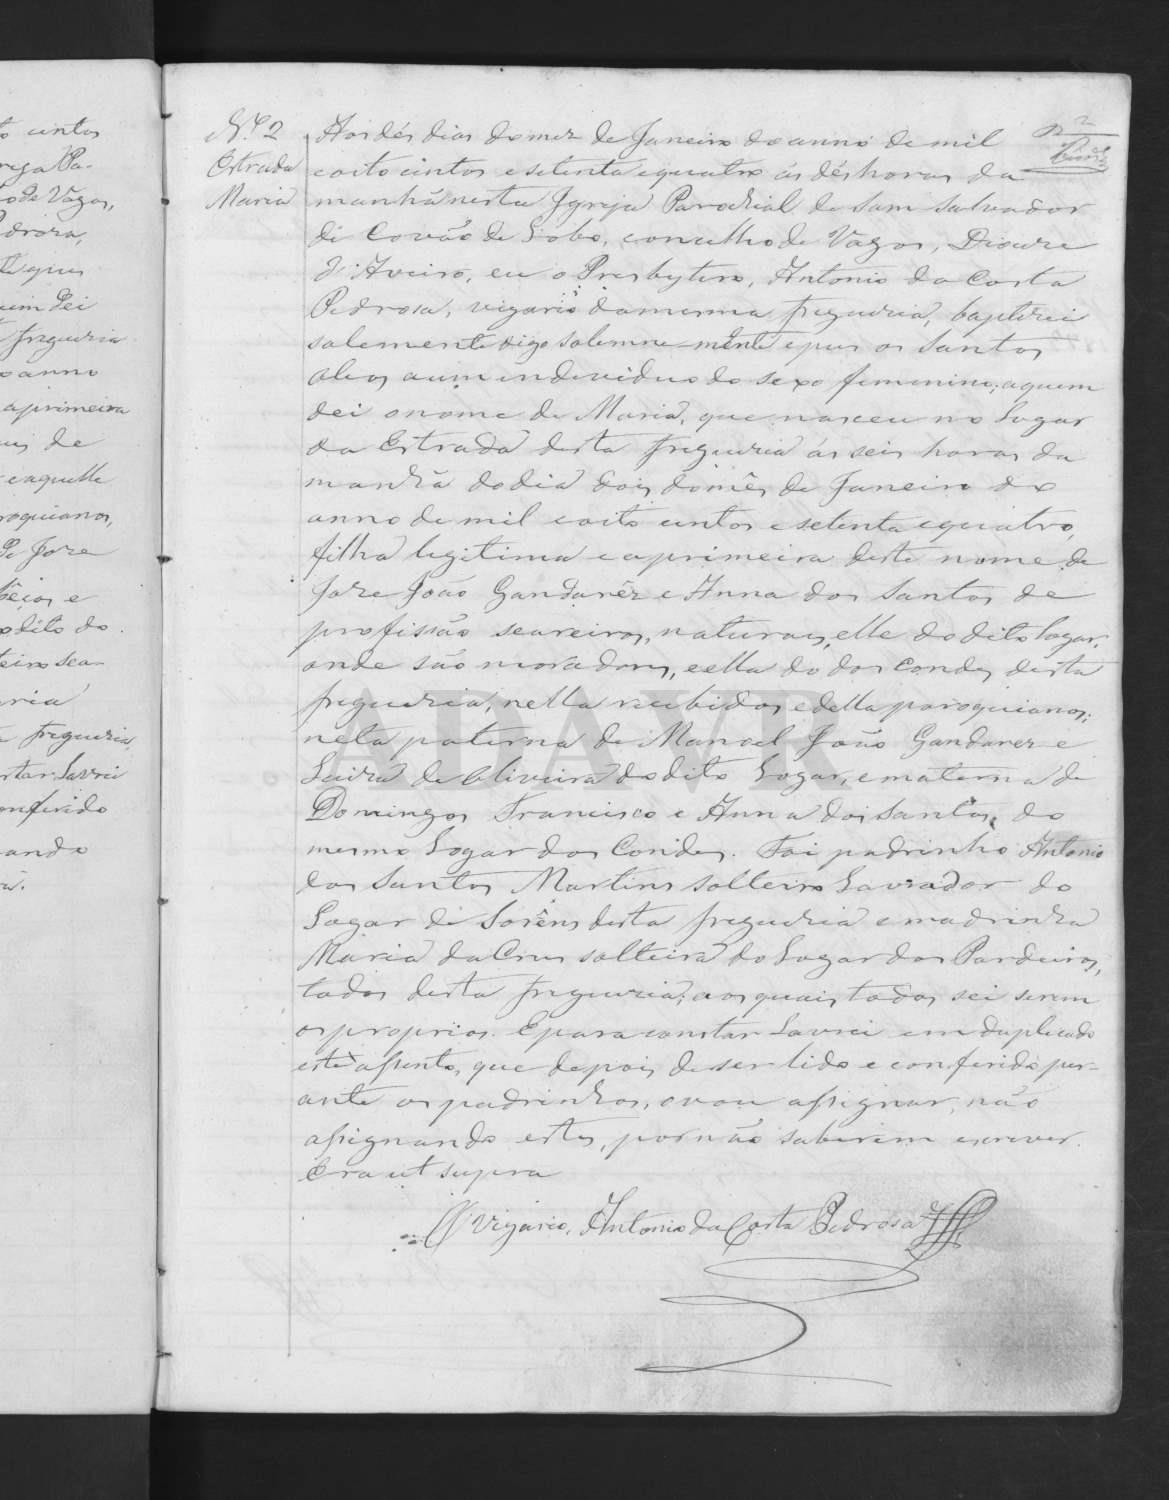 N.º 2
Estrada
Maria
2
Aos dés dias do mez de Janeiro do anno de mil
oito centos e setenta e quatro ás dés horas da
manhã nesta Igreja Parochial de Sam Salvador
de Covão de Lobo, concelho de Vagos, Diocese
d'Aveiro, eu o Presbytero, Antonio da Costa
Pedrosa, vigario da mesma freguezia, baptizei
solemente digo solemne-mente e pus os Santos
oleos a um endeviduo do sexo femenino, a quem
dei o nome de Maria, que nasceu no Lugar
da Estrada desta freguezia ás seis horas da
manhã do dia dois do mês de Janeiro do
anno de mil oito centos e setenta e quatro,
filha legitima e a primeira deste nome de
Joze João Gandarêz e Anna dos Santos de
profissão seareiros, naturaes, elle do dito logar,
onde são moradores, e ella do dos Condes desta
freguezia, nella recebidos e della paroquianos;
neta paterna de Manoel João Gandarez e
Luiza de Oliveira do dito Logar, e materna de
Domingos Francisco e Anna dos Santos, do
mesmo Logar dos Condes. Foi padrinho Antonio
dos Santos Martins solteiro Lavrador do
Logar de Lorêns desta freguezia e madrinha
Maria da Crus solteira do Logar dos Pardeiros,
todos desta freguezia, aos quais todos sei serem
os proprios. E para constar Lavrei em duplicado
este assento, que depois de ser lido e conferido per-
ante os padrinhos, o vou assignar, não
assignando estes, por não saberem escrever.
Era ut supra
O Vigario, Antonio da Costa Pedrosa
to centos
rega Pa-
o de Vagos,
Pedroza,
que
um dei
freguezia
o anno
a primeira
de
e aquelle
roquianos,
de Joze
e
o dito do
teiro sea-
aria
freguezia
star Lavrei
onferido
ando
ADAVR